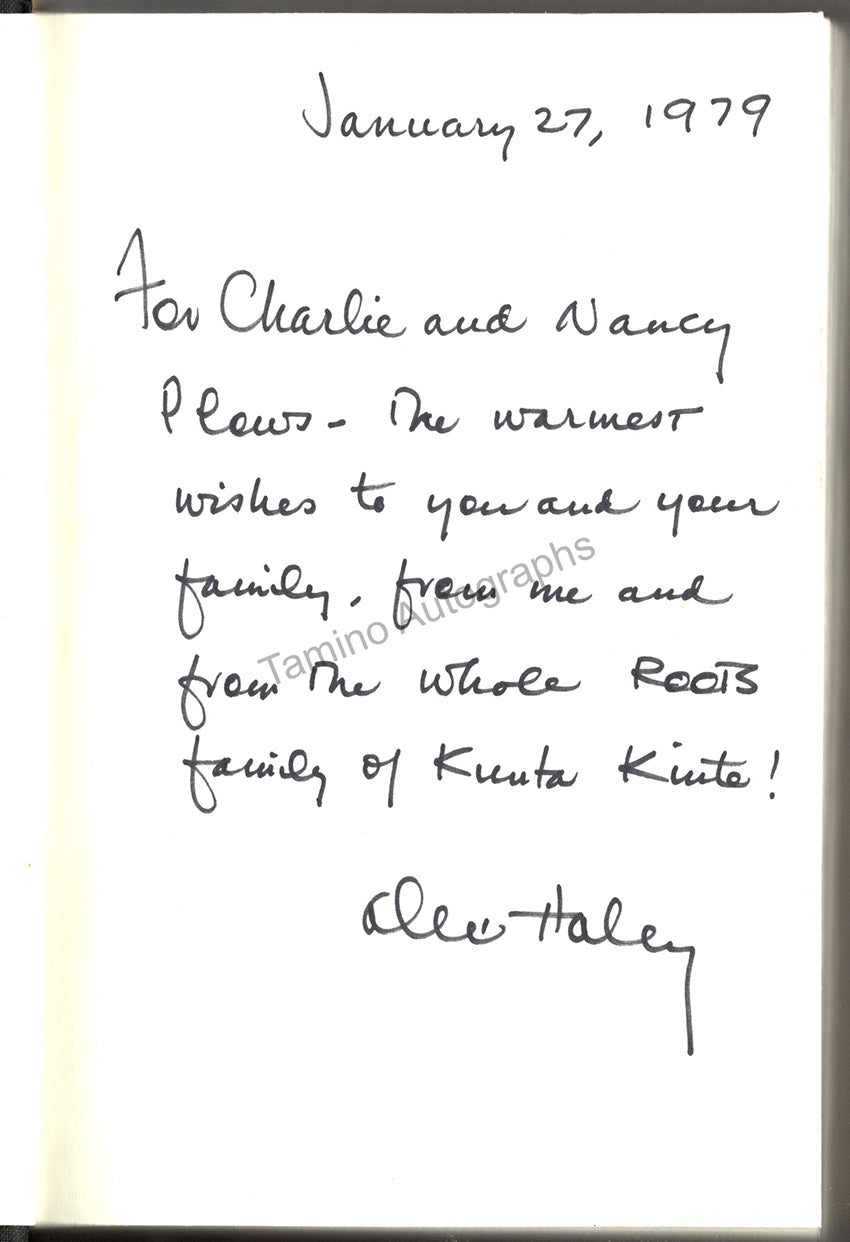 January 27, 1979
For Charlie and Nancy
Plows - The warmest
wishes to you and your
family, from me and
from the whole ROOTS
family of Kunta Kinte!
Alex Haley
Tamino Autographs